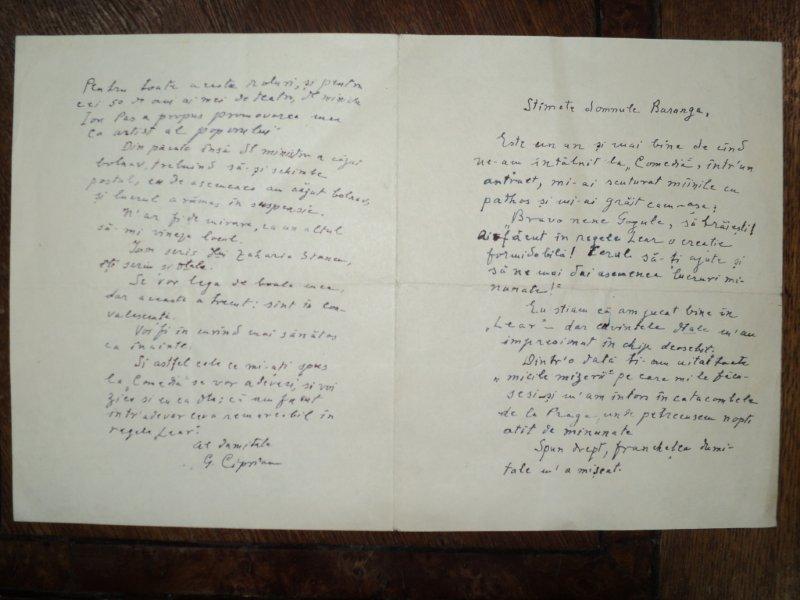 Stimate domnule Baranga,
Este un an și mai bine de cînd
ne-am întâlnit la „Comedia", într'un
antract, mi-ai scuturat mîinile cu
pathos și mi-ai grăit cam-așa:
„Bravo nene Gogule, să trăiești!
Ai făcut în regele Lear o creație
formidabilă! Cerul să-ți ajute și
să ne mai dai asemenea lucruri mi-
nunate!"
Eu știam că am jucat bine în
„Lear" – dar cuvintele dtale m'au
impresionat în chip deosebit.
Dintr'o dată ți-am uitat toate
„micile mizerii" pe care mi le făcu-
seși și m'am întors în catacombele
de la Praga unde petrecusem nopți
atît de minunate
Spun drept, franchețea dumi-
tale m'a mișcat.
Pentru toate aceste roluri, și pentru
cei 50 de ani ai mei de teatru, dl ministru
Ion Pas a propus promovarea mea
ca artist al poporului
Din păcate însă dl ministru a căzut
bolnav, trebuind să-și schimbe
postul, eu de asemenea am căzut bolnav,
și lucrul a rămas în suspensie.
N'ar fi de mirare, ca un altul
să-mi vineze locul.
I-am scris lui Zaharia Stancu,
îți scriu și dtale.
Se vor lega de boala mea,
dar aceasta a trecut: sînt în con-
valescență.
Voi fi în curînd mai sănătos
ca înainte.
Și astfel cele ce mi-ați spus
la „Comedia" se vor adeveri, și voi
zice și eu ca dta: că am făcut
într'adevăr ceva remarcabil în
regele Lear".
Al dumitale
G. Ciprian